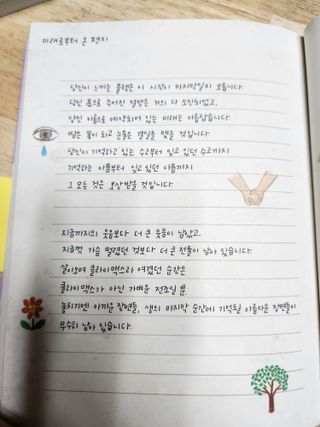 미래로부터 온 편지
당신이 느끼는 불행은 이 시점이 마지막일지 모릅니다.
당신 몫으로 주어진 절망은 거의 다 소진되었고,
당신 이름으로 예약되어 있는 미래는 아름답습니다.
땀은 꽃이 되고 눈물은 결실을 맺을 것입니다.
당신이 기억하고 있는 수고부터 잊고 있던 수고까지
기억하는 아픔부터 잊고 있던 아픔까지
그 모든 것은 보상받을 것입니다.
지금까지의 웃음보다 더 큰 웃음이 남았고,
지금껏 가슴 떨렸던 것보다 더 큰 전율이 남아 있습니다.
살아오며 클라이맥스라 여겼던 순간은
클라이맥스가 아닌 가벼운 전조일 뿐,
놓치기엔 아까운 장면들, 생의 마지막 순간에 기억될 아름다운 장면들이
무수히 남아 있습니다.